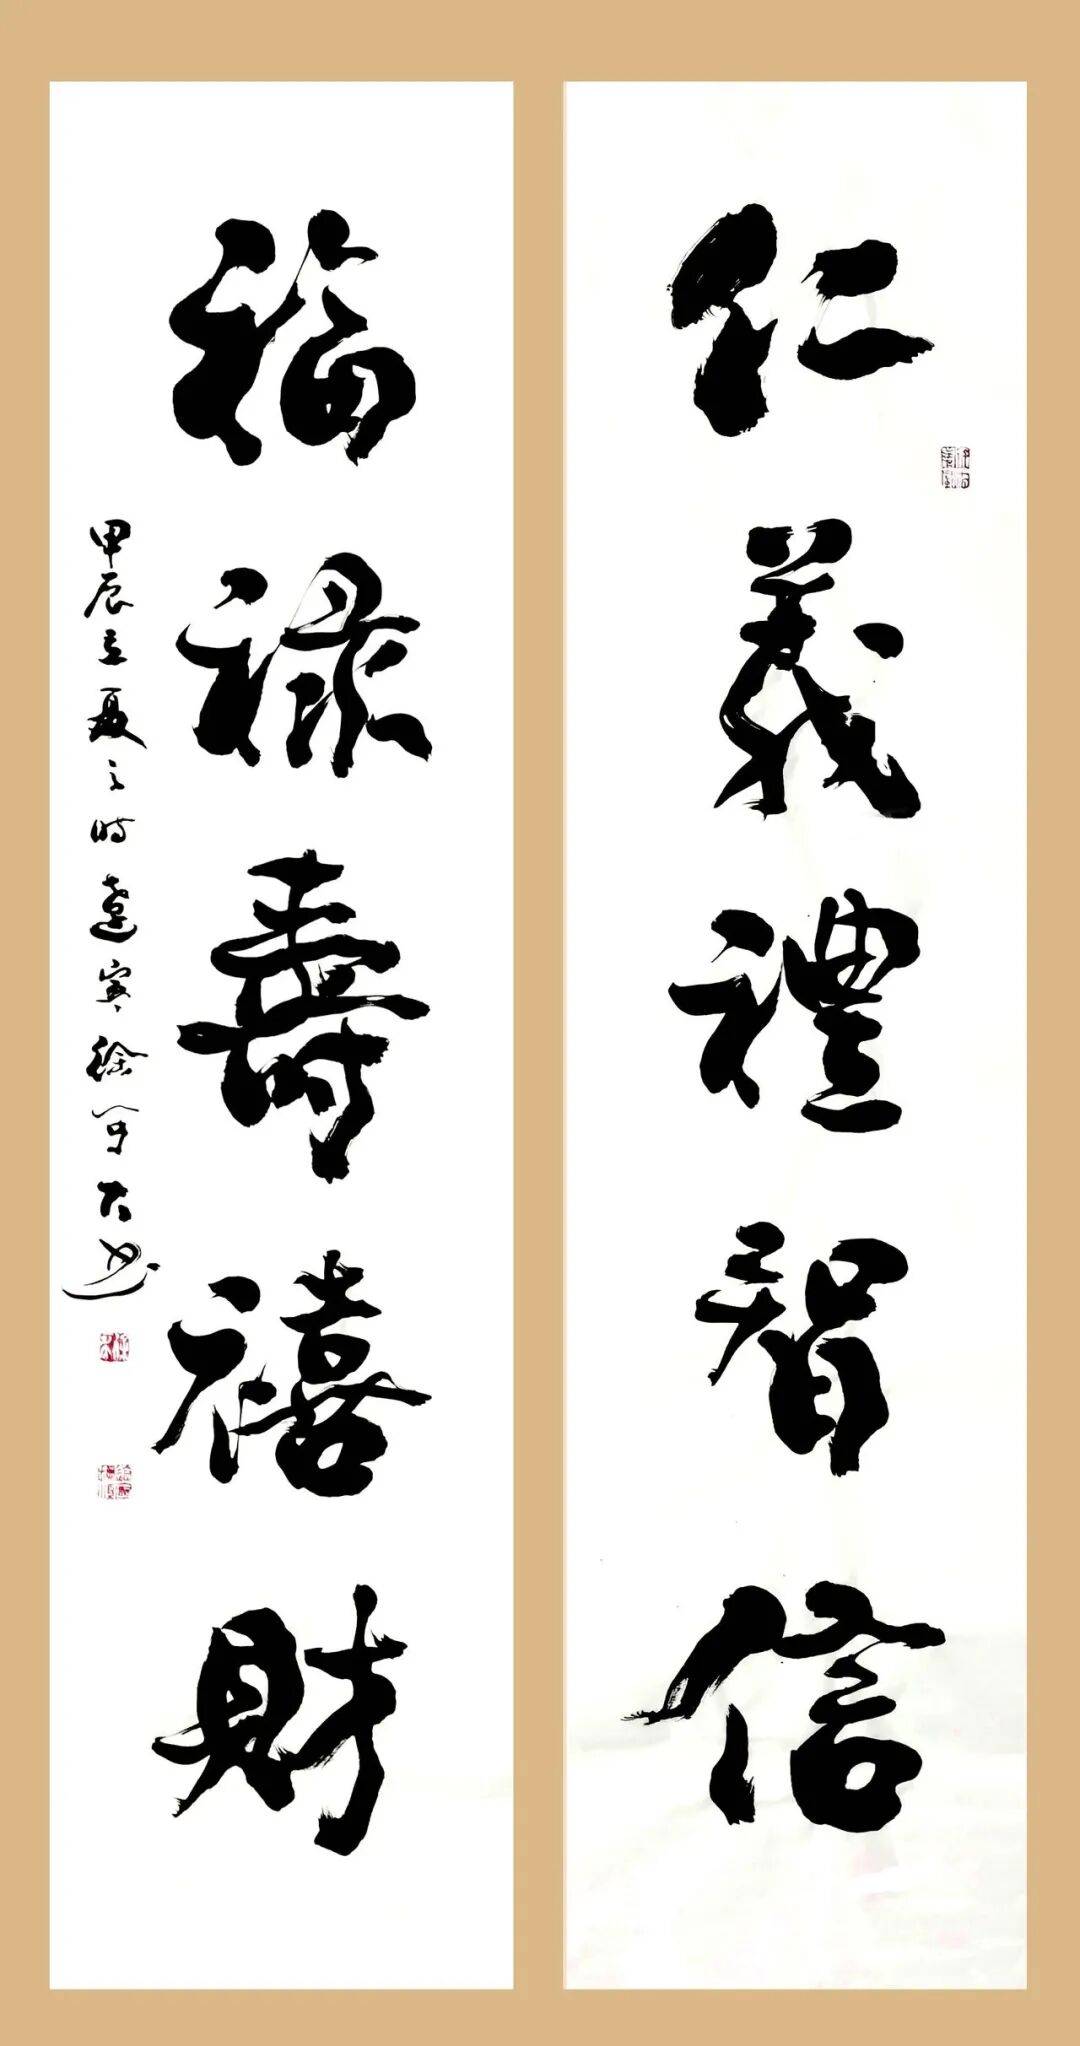 仁義禮智信
福祿壽禧財
甲辰立夏之時遠寧徐